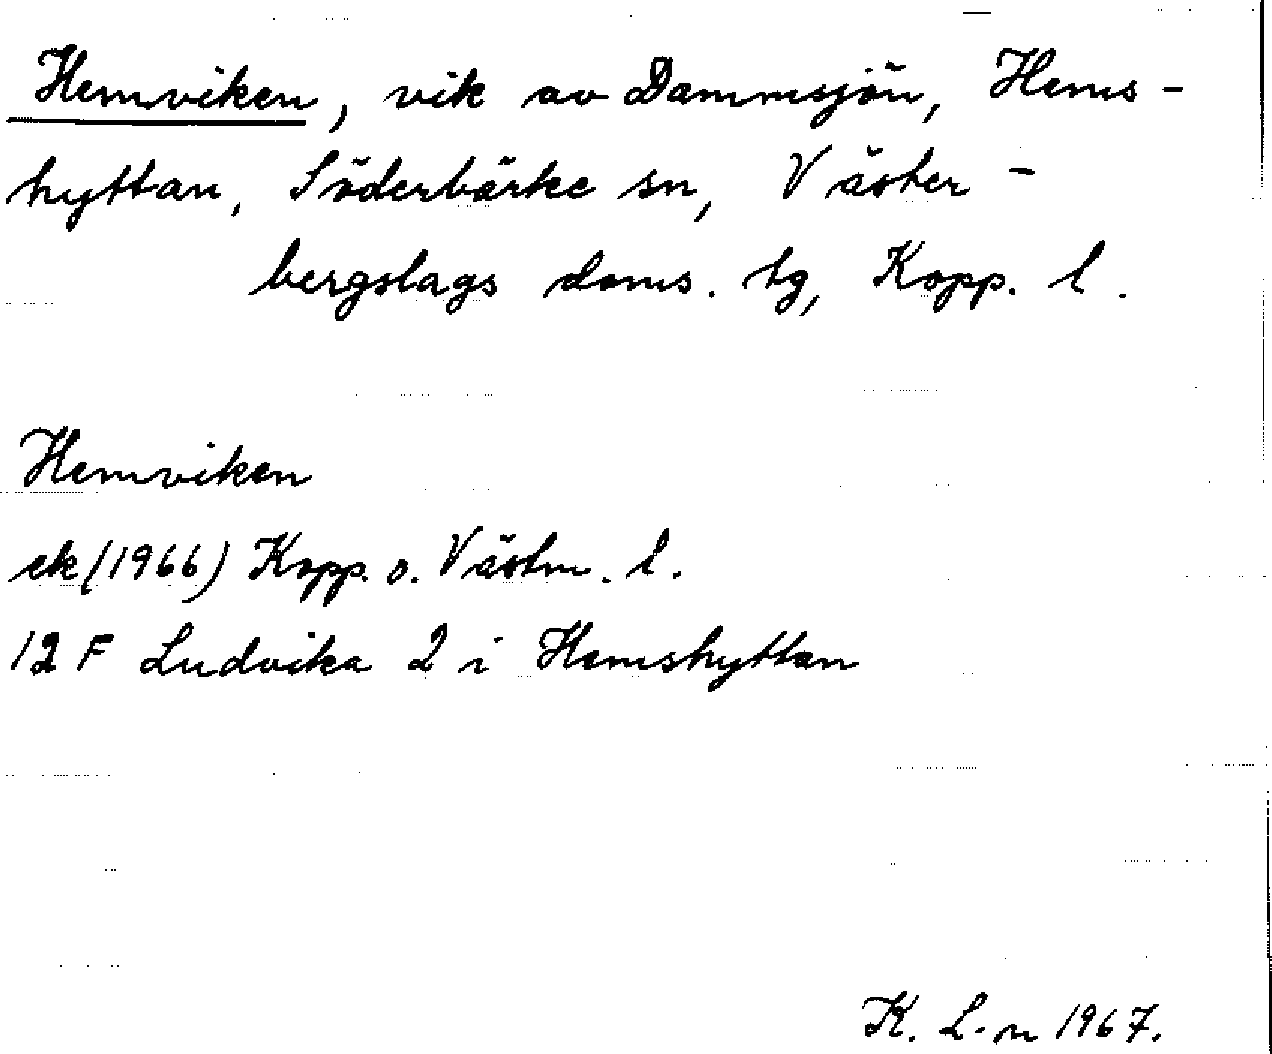 Hemviken, vik av Dammsjön, Hems-
hyttan, Söderbärke sn, Väster-
bergslags doms. tg, Kopp. l.
Hemviken
ek (1966) Kopp. o. Västm. l.
12 F Ludvika 2 i Hemshyttan
K. L-n 1967.